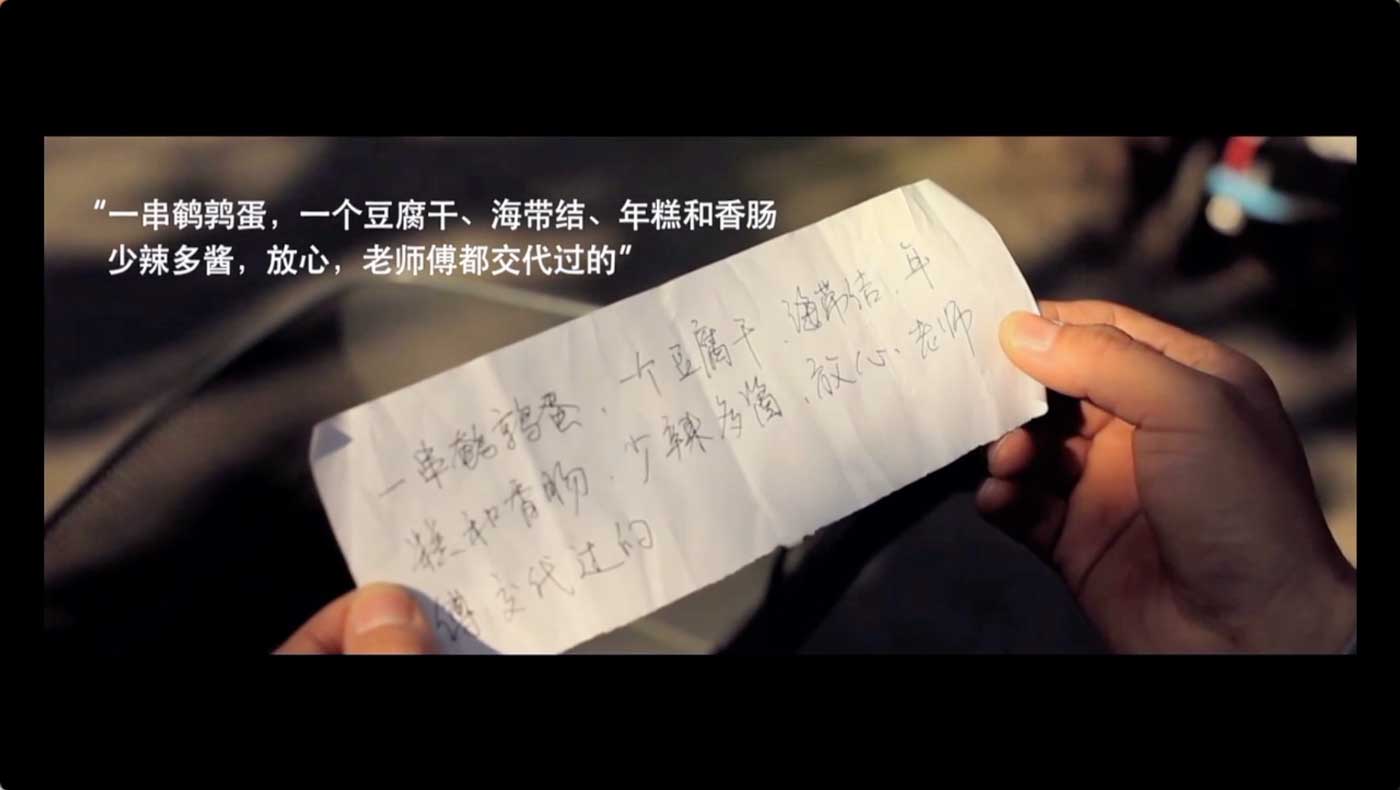 “一串鹌鹑蛋，一个豆腐干、海带结、年糕和香肠
少辣多酱，放心，老师傅都交代过的”
一串鹌鹑蛋、一个豆腐干、海带结、年
糕和香肠、少辣多酱、放心、老师
傅交代过的